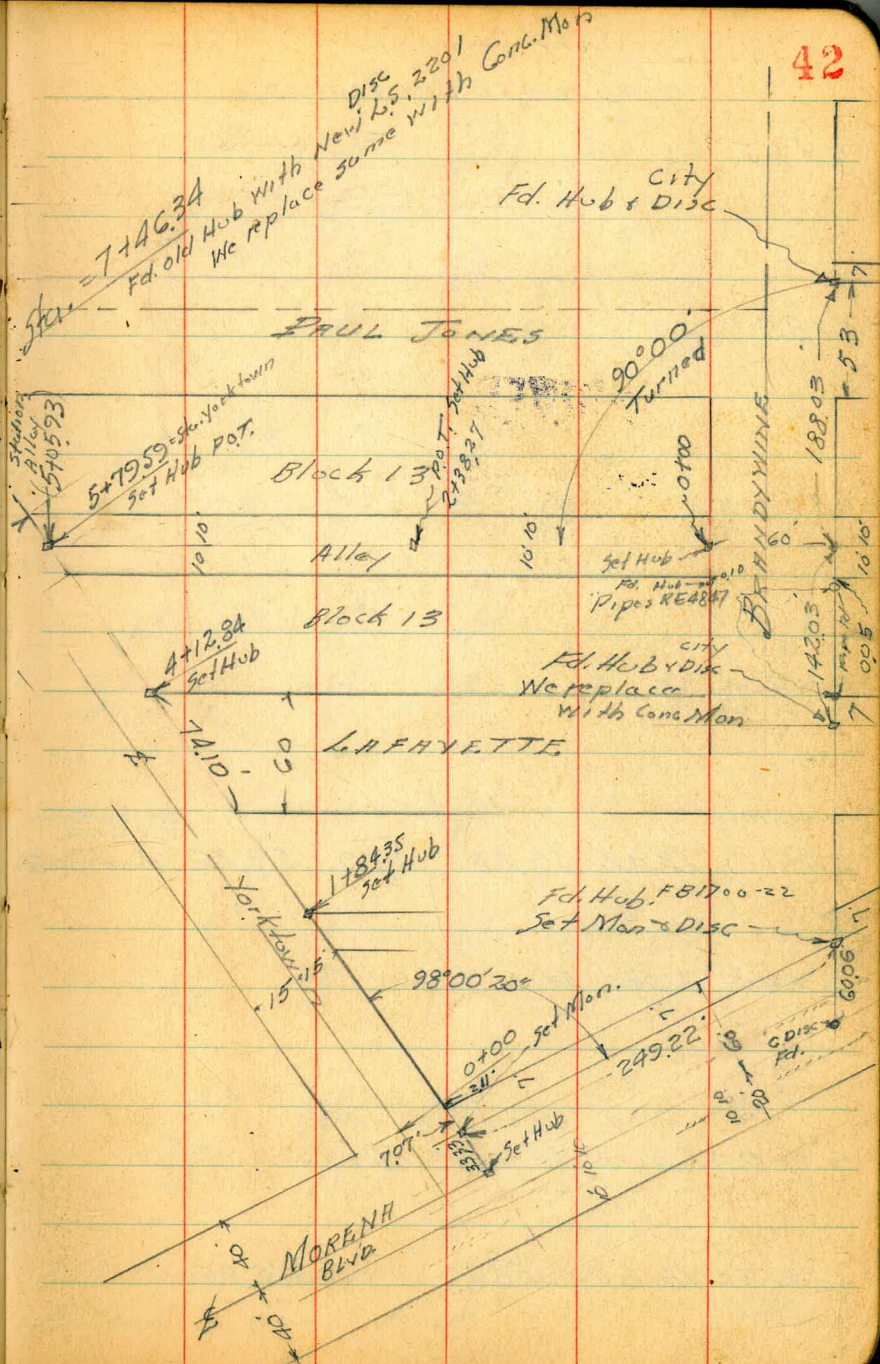 42
Sta. = 7+46.34
Fd. old Hub with New Disc L.S. 2201
We replace same with Conc. Mon
City
Fd. Hub & Disc
7
53
188.03
PAUL JONES
90°00'
Turned
BRANDYWINE
Station
Alley
5+05.93
5+79.59 = Sta. Yorktown
Set Hub P.O.T.
Block 13
P.O.T. Set Hub
2+38.27
0+00
10' 10'
Alley
10' 10'
Set Hub
Fd. Hub
0.10
Pipes RE4847
60'
10' 10'
Block 13
4+12.84
Set Hub
City
Fd. Hub & Disc
We replace
with Conc Mon
142.03
0.05
7
74.10
60
LAFAYETTE
1+84.35
Set Hub
Yorktown
15' 15'
Fd. Hub. FB1700-22
Set Mon & Disc
7
60.06
98°00'20"
0+00
Set Mon.
2.11'
7
7
249.22'
C. Disc
Fd.
60
20
10 10
7.07'
33.73
Set Hub
10 10
MORENA
BLVD.
40'
40'